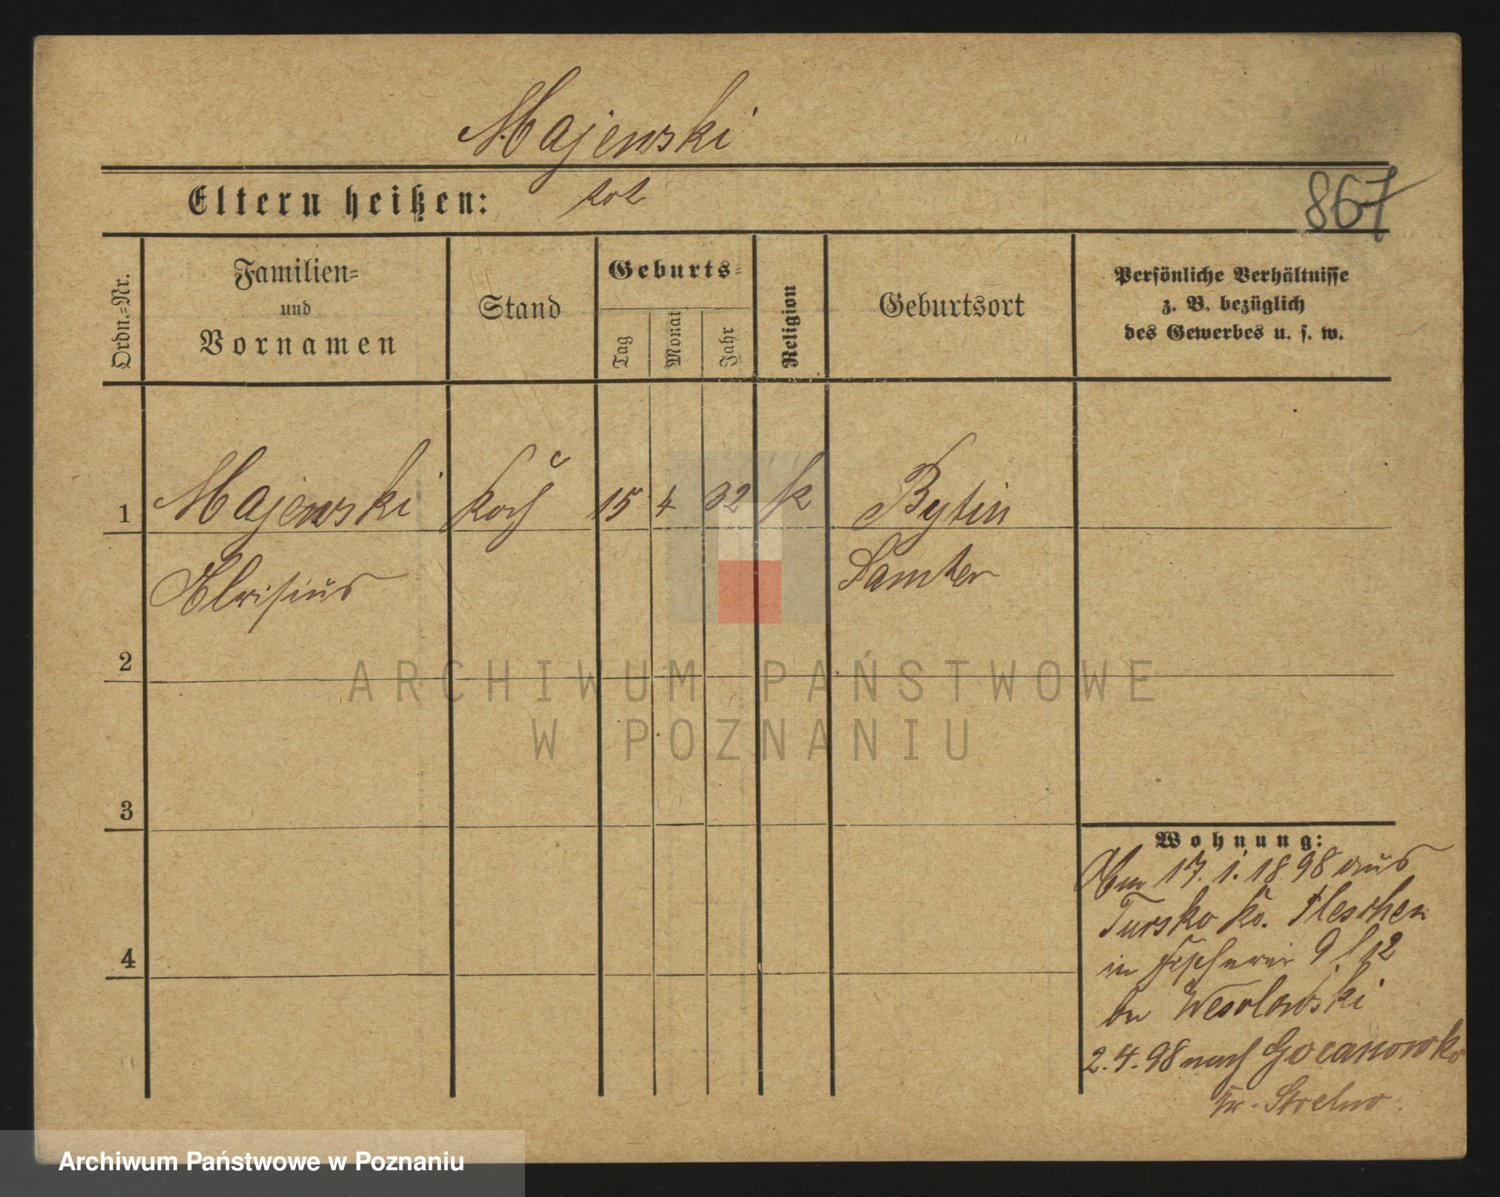 Majewski
Eltern heißen: tot
867
Ordn.=Nr.
Familien=
und
Vornamen
Stand
Geburts=
Tag
Monat
Jahr
Religion
Geburtsort
Persönliche Verhältnisse
z. B. bezüglich
des Gewerbes u. s. w.
1 Majewski Koch 15 4 32 k Bytin
Aloisius Samter
2
3
4
Wohnung:
Am 17.1.1898 aus
Tursko Kr. Pleschen
in Fischerei 9
bei Wesolowski
2.4.98 nach Gocanowko
Kr. Strelno.
ARCHIWUM PAŃSTWOWE
W POZNANIU
Archiwum Państwowe w Poznaniu